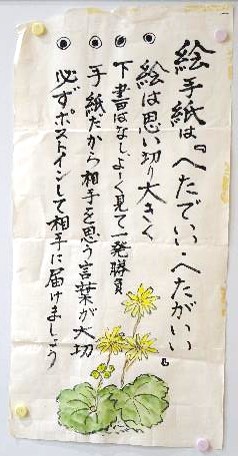 絵手紙は『へたでいい・へたがいい』
●絵は思い切り大きく
●下書きはなし、よーく見て一発勝負
●手紙だから相手を思う言葉が大切
●必ずポストインして相手に届けましょう